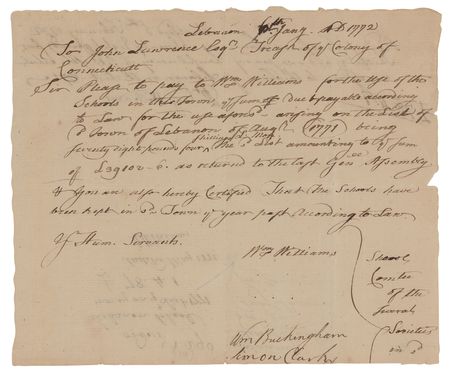 Lebanon Jany. AD 1772
To John Lawrence Esqr. Treasr. of ye Colony of
Connecticutt
Sir Please to pay to Wm Williams for the use of the
Schools in this Town, ye sum of due & payable according
to Law for the use aforesd. arising on the List of
sd Town of Lebanon of Augt. 1771 being
seventy eight pounds four shillings & The sd List amounting to ye sum
of £39002-6- as returned to the last Genll Assembly
& You are also hereby Certified That the Schools have
been kept in sd Town ye year past According to Law
Yr Hum. Servants.
Wm Williams
Wm Buckingham
Simon Clark
School
Comtee
of the
several
Societies
in sd